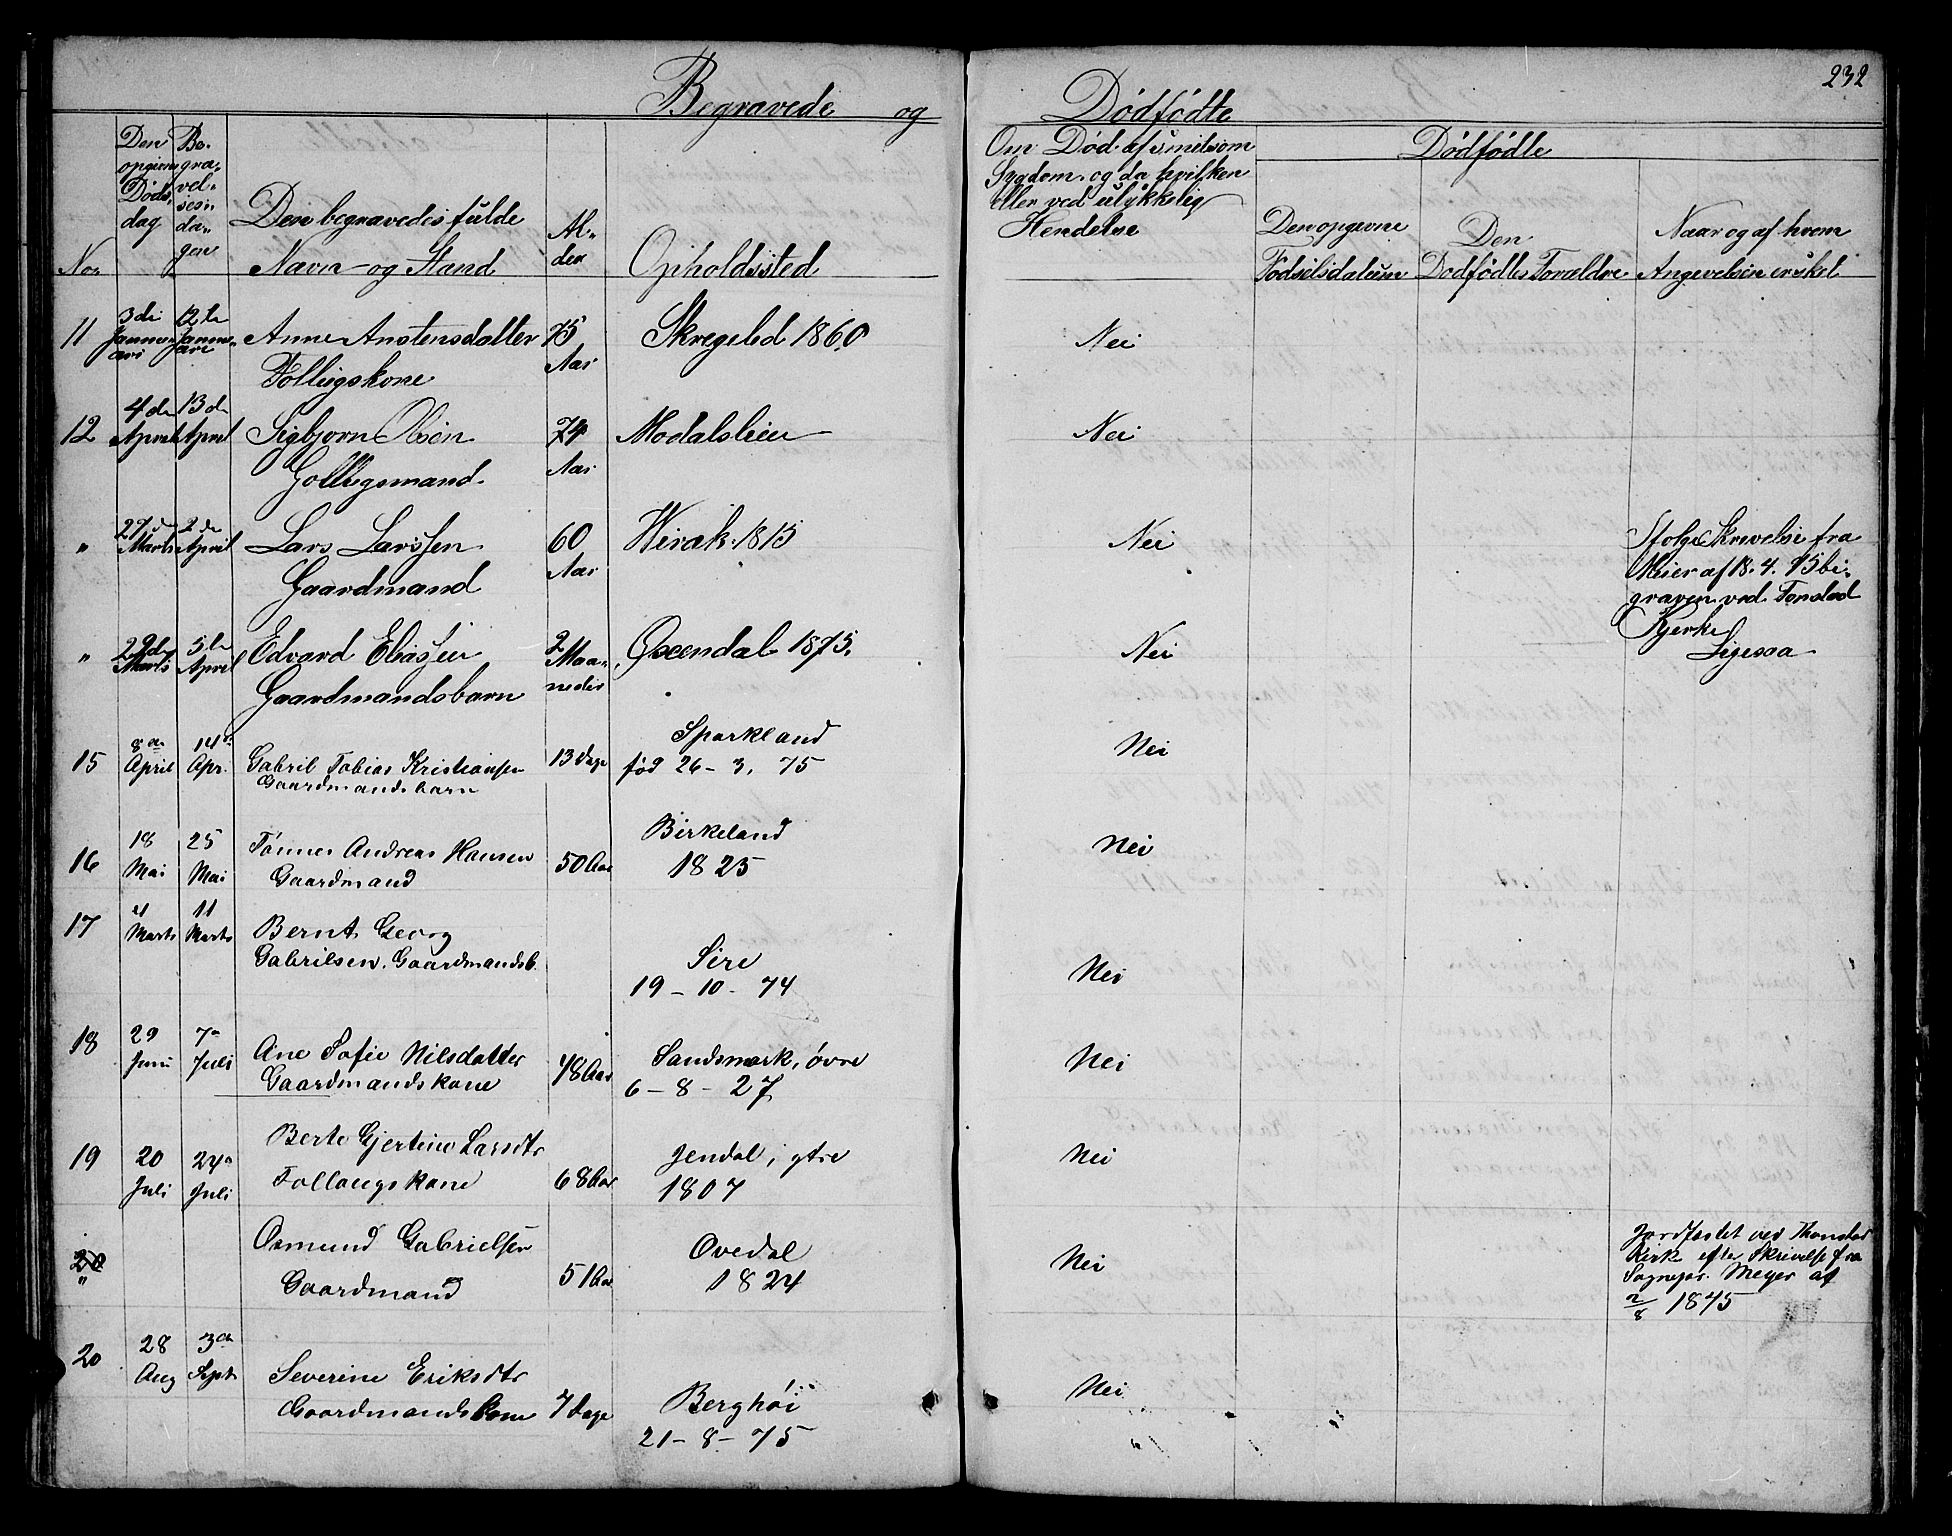 232
Begravede og Dødfødte
No.
Den opgivne Døds dag
Be-gra-vel-ses da-gen
Den begravedes fulde Navn og Stand
Al-der
Opholdssted
Om Død af smitsom
Sygdom og da hvilken
eller ved ulykkelig
Hendelse
Dødfødte
Den opgivne Fødselsdatum
Den Dødfødtes Forældre
Naar og af hvem Angivelsen er sket
11 3die Januari 12te Januari Anne Anstensdatter 75 Aar Skregeled 1860 Nei
Follugskone
12 4de April 13de April Sigbjørn Olsen 74 Aar Modalslien Nei
Follugsmand
" 27de Marts 2de April Lars Larssen 60 Aar Wirak 1815 Nei
Gaardmand
Ifølge Skrivelse fra
Meier af 18. 4. 75 be-
graven ved Tonstad
Kjerke
Ligesaa
" 29de Marts 5te April Edvard Eliassen 2 Maaneder Øxendal 1875. Nei
Gaardmandsbarn
15 8de April 14de Apr. Gabril Tobias Kristiansen 13 dage Sparkland Nei
Gaardmandsbarn fød 26 - 3. 75
16 18 Mai 25 Mai Tønnes Andreas Hansen 50 Aar Birkeland Nei
Gaardmand 1825
17 4 Marts 11 Marts Bernt Georg
Gabrilsen. Gaardmandsb. Sire Nei
19 - 10 - 74
18 29 Juni 7de Juli Ane Sofie Nilsdatter 48 Aar Sandsmark, øvre Nei
Gaardmandskone 6 - 8 - 27
19 20 Juli 24de Juli Berte Gjertine Larsdtr 68 Aar Jendal, ytre Nei
Follaugskone 1807
20 " Osmund Gabrielsen 51 Aar Ovedal Nei
Gaardmand 1824
Jordfæstet ved Thonstad
Kirk efter Skrivelse fra
Sognepr. Meyer af
2/8 1875
20 28 Aug 3de Sept. Severine Eriksdtr 7 dage Berghøi Nei
Gaardmandskone 21 - 8 - 75